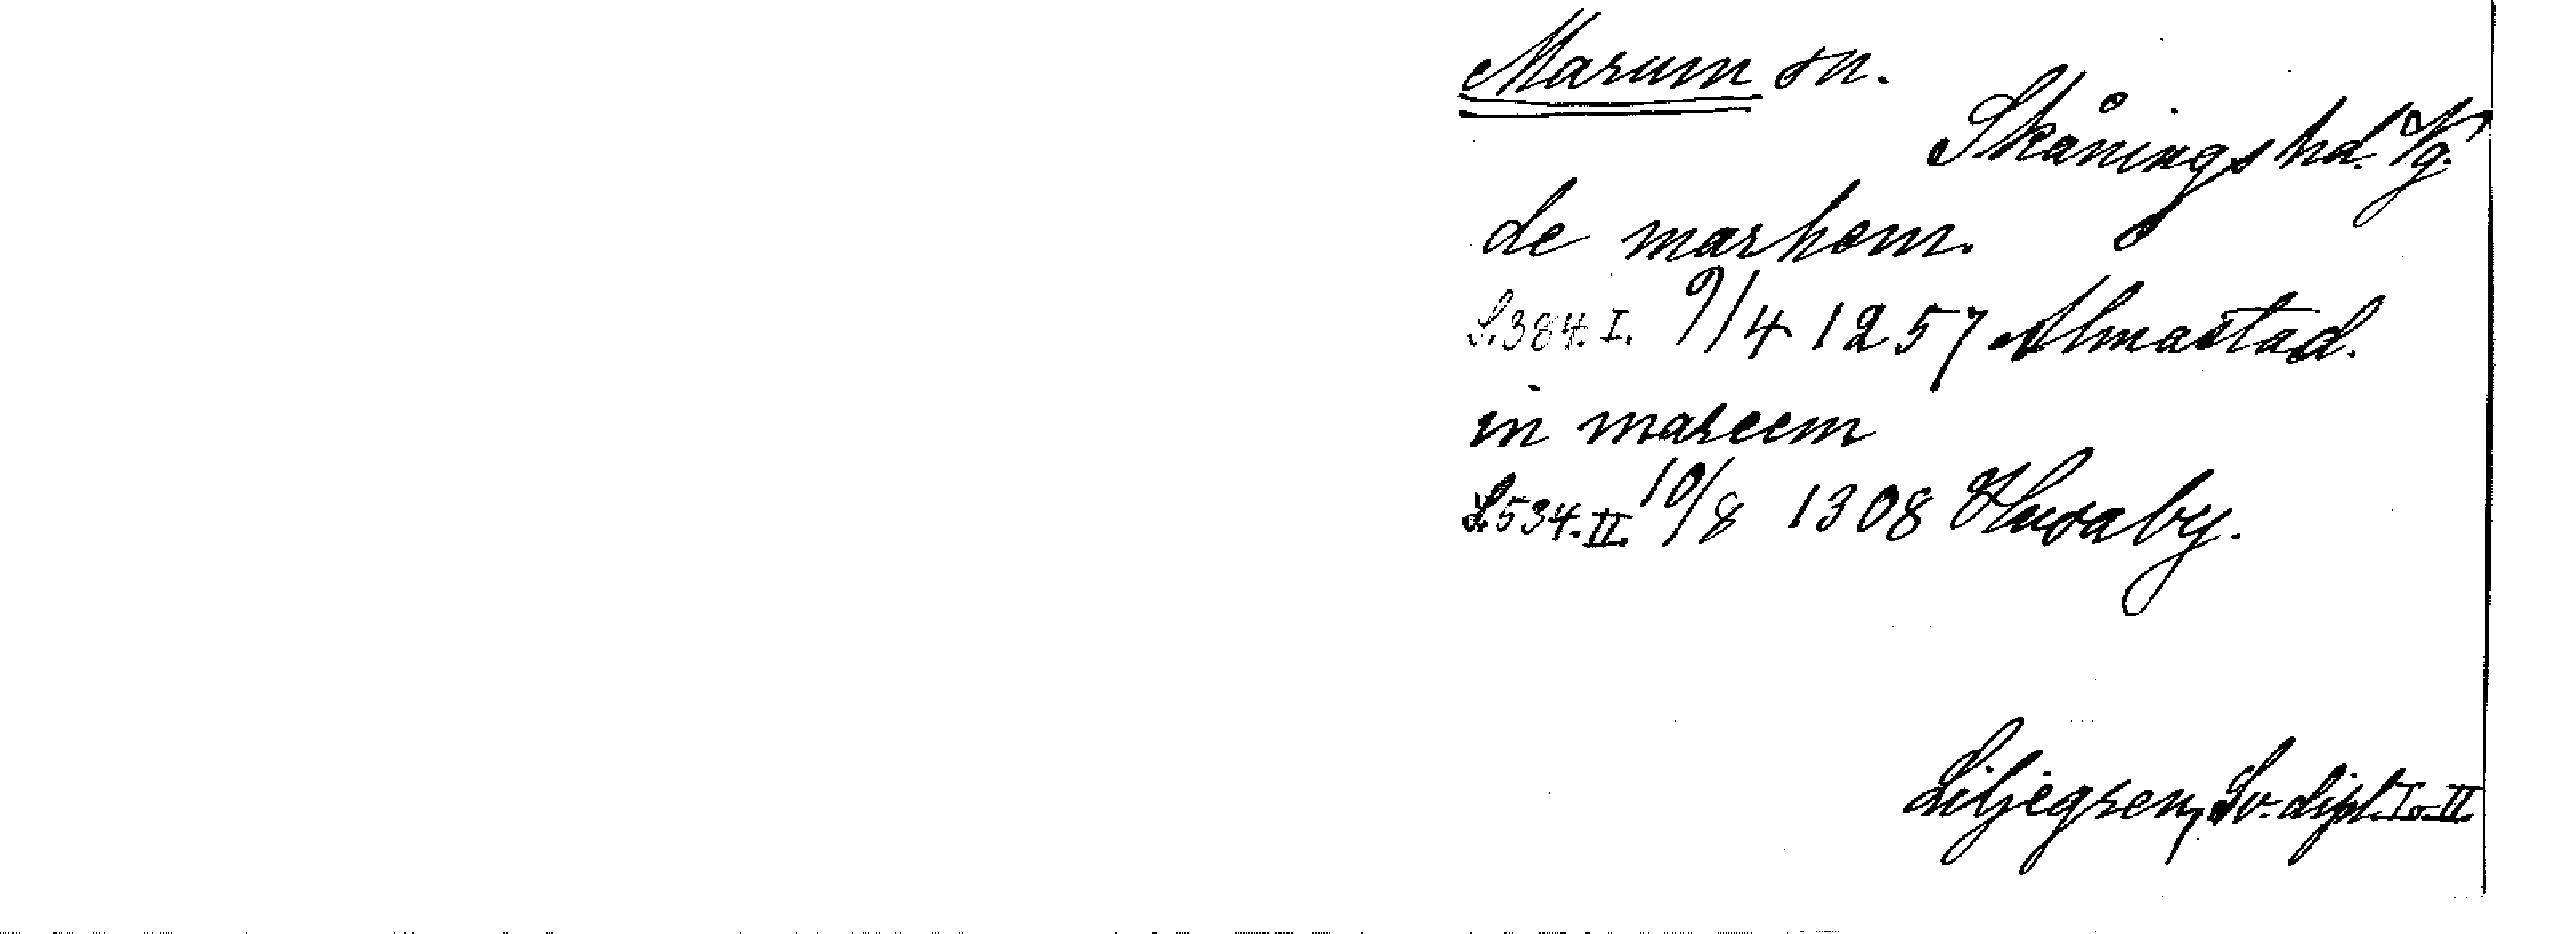 Marum sn.
Skånings hd. Vg.
de marhem.
S. 384. I. 9/4 1257 Almastad.
in mareem
S. 534. II. 10/8 1308 Huvaby.
Liljegren, Sv. dipl. I o. II.